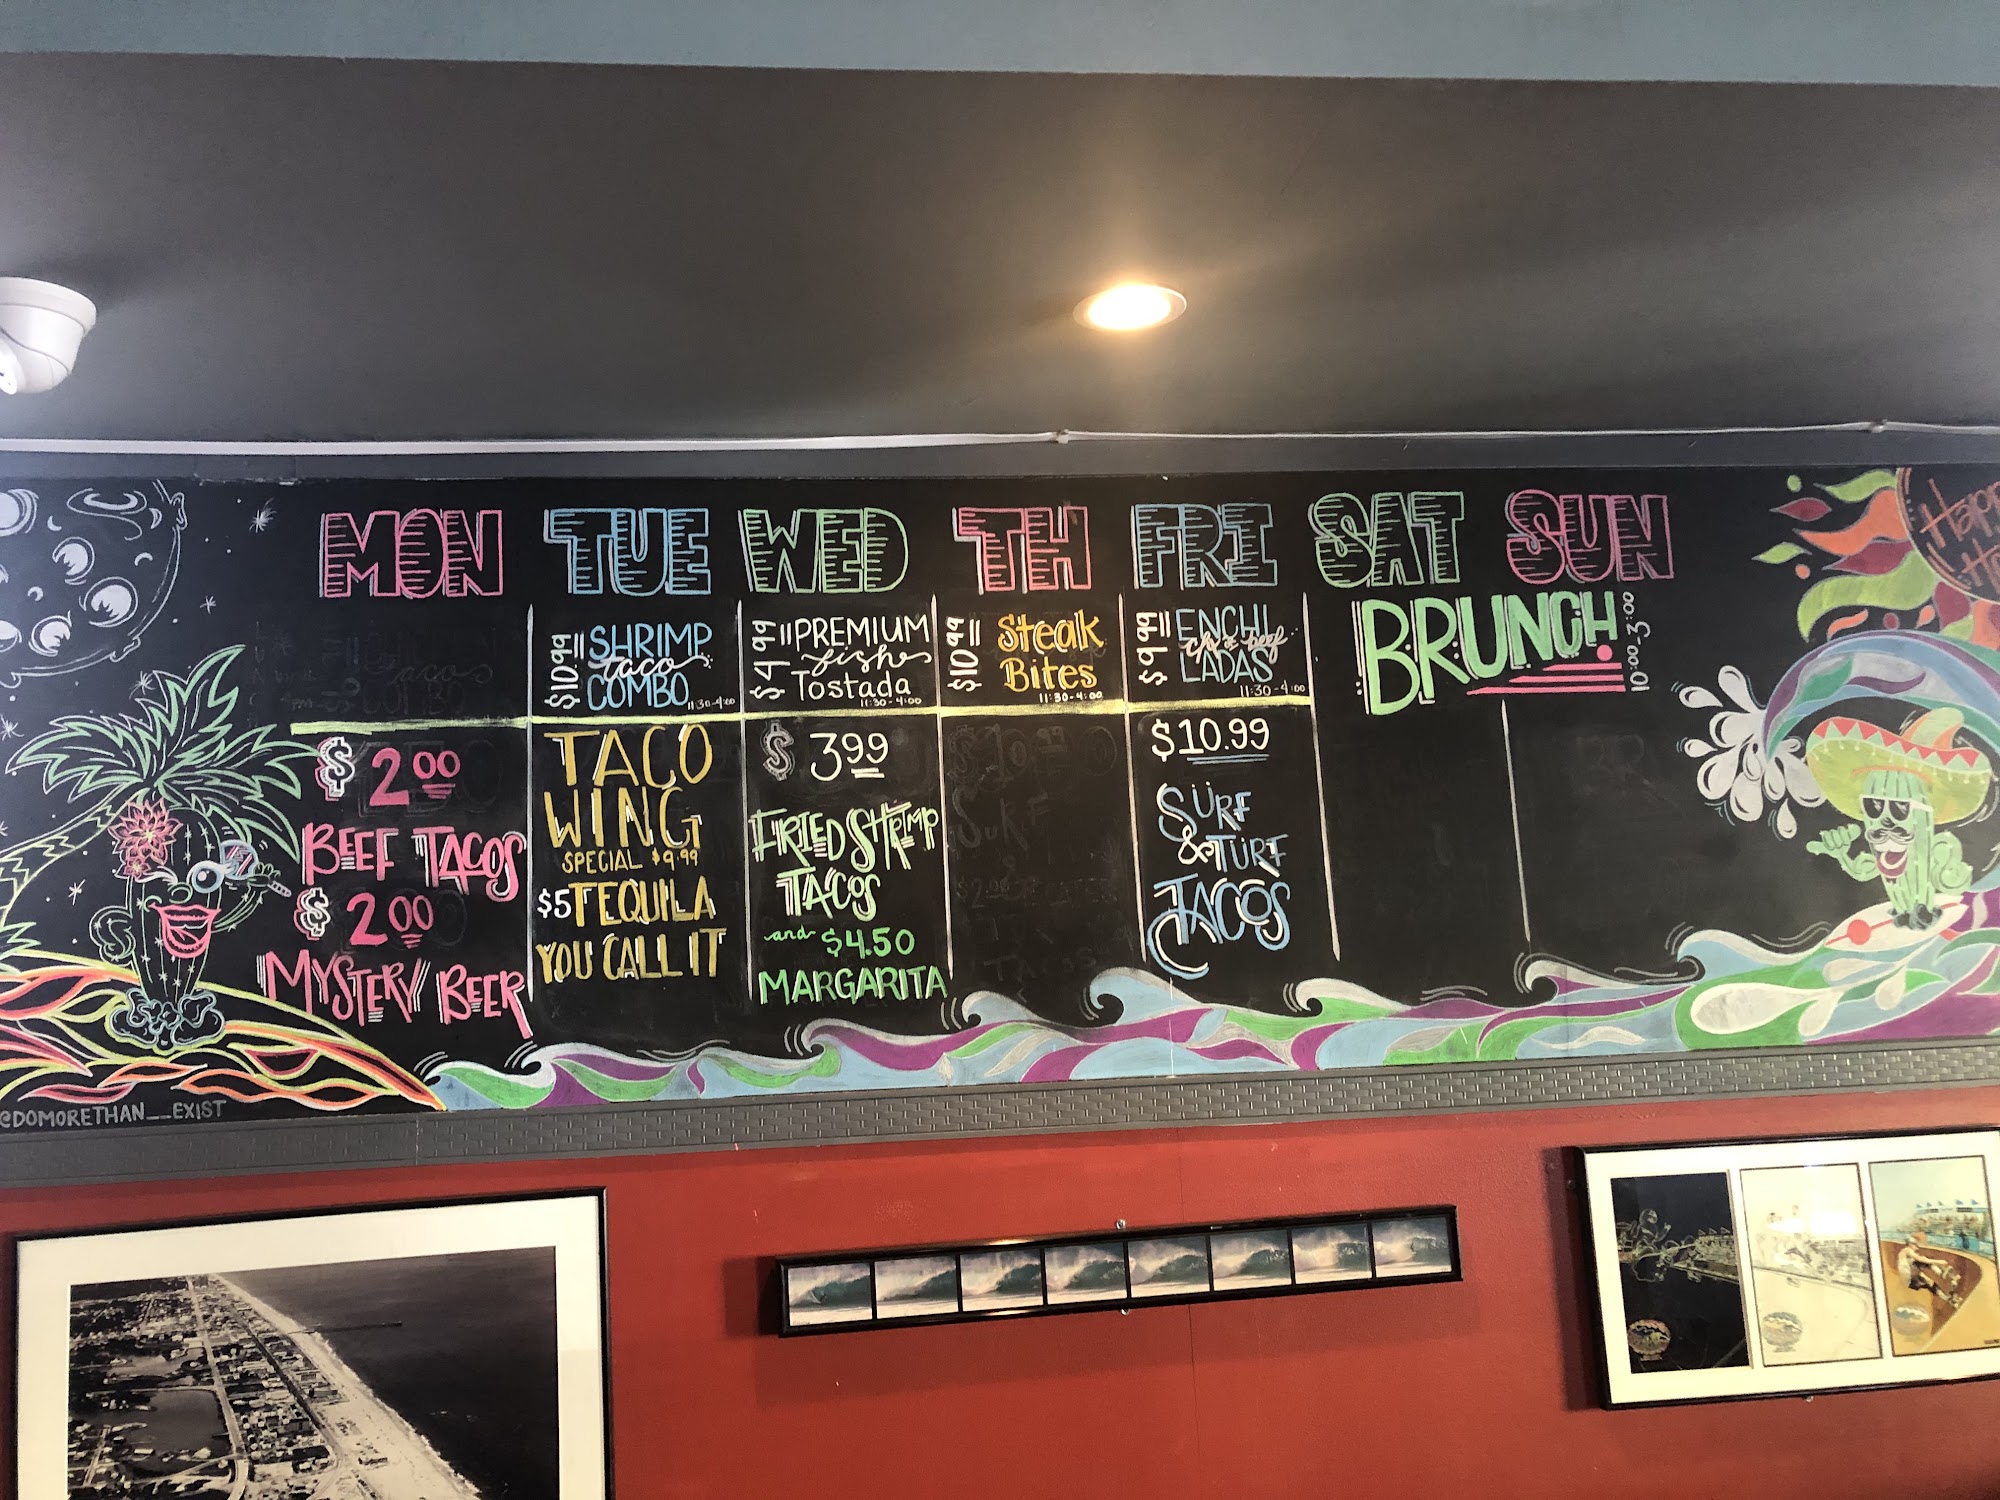 MON TUE WED TH FRI SAT SUN
$10.99
SHRIMP
taco
COMBO
11:30-4:00
$4.99
PREMIUM
fish
Tostada
11:30-4:00
$10.99
Steak
Bites
11:30-4:00
$9.99
ENCHI
chx or beef
LADAS
11:30-4:00
BRUNCH
10:00-3:00
$2.00
BEEF TACOS
$2.00
MYSTERY BEER
TACO
WING
SPECIAL $9.99
$5 TEQUILA
YOU CALL IT
$3.99
FRIED SHRIMP
TACOS
and $4.50
MARGARITA
$10.99
SURF
& TURF
TACOS
Happy
@DOMORETHAN__EXIST